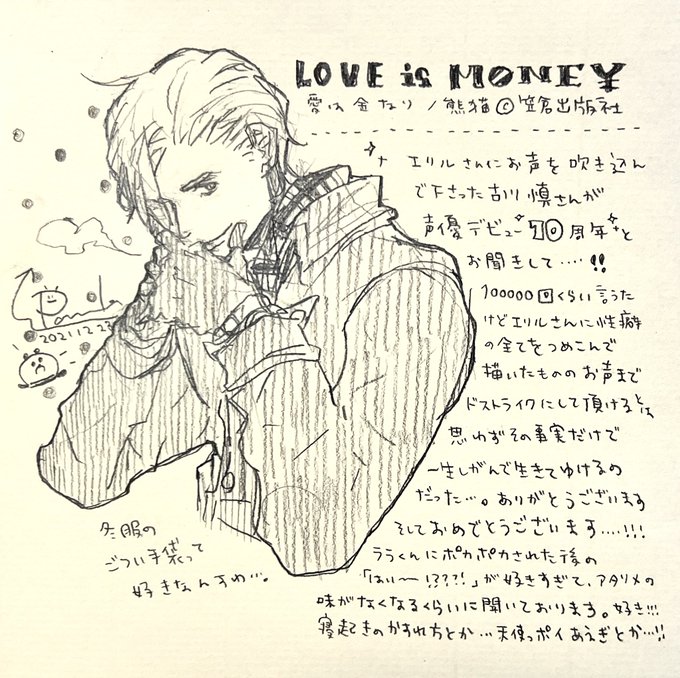 LOVE is MONE¥
愛は金なり / 熊猫 © 笠倉出版社
エリルさんにお声を吹き込ん
で下さった古川慎さんが
声優デビュー10周年と
お聞きして・・・・!!
100000回くらい言うた
けどエリルさんに性癖
の全てをつめこんで
描いたもののお声まで
ドストライクにして頂けるとは
思わずその事実だけで
一生しがんで生きてゆけるの
だった…。ありがとうございます
そしておめでとうございます....!!!
ララくんにポカポカされた後の
「はい〜!???!」が好きすぎて、アタリメの
味がなくなるくらいに聞いております。好き!!!
寝起きのかすれ方とか…天使っポイあえぎとか…!!
Panda
2021.12.23
冬服の
ごつい手袋って
好きなんすわ…。